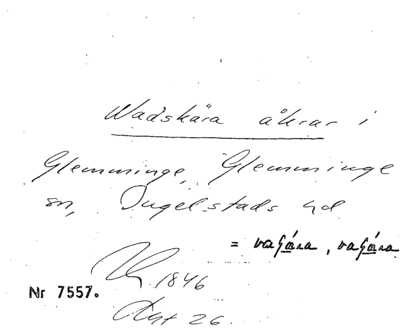 Wadskära åkrar i
Glemminge, Glemminge
sn, Ingelstads hd
= vagära, vagära
1846
Nr 7557.
Akt 26